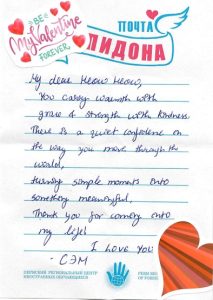 BE
My Valentine
FOREVER
ПОЧТА
ЛИДОНА
My dear Meow Meow,
You carry warmth with
grace & strength with kindness.
There is a quiet confidence in
the way you move through the
world,
turning simple moments into
something meaningful,
Thank you for coming into
my life!
I LOVE YOU
- СЭМ
ПЕРМСКИЙ РЕГИОНАЛЬНЫЙ ЦЕНТР
ИНОСТРАННЫХ ОБУЧАЮЩИХСЯ